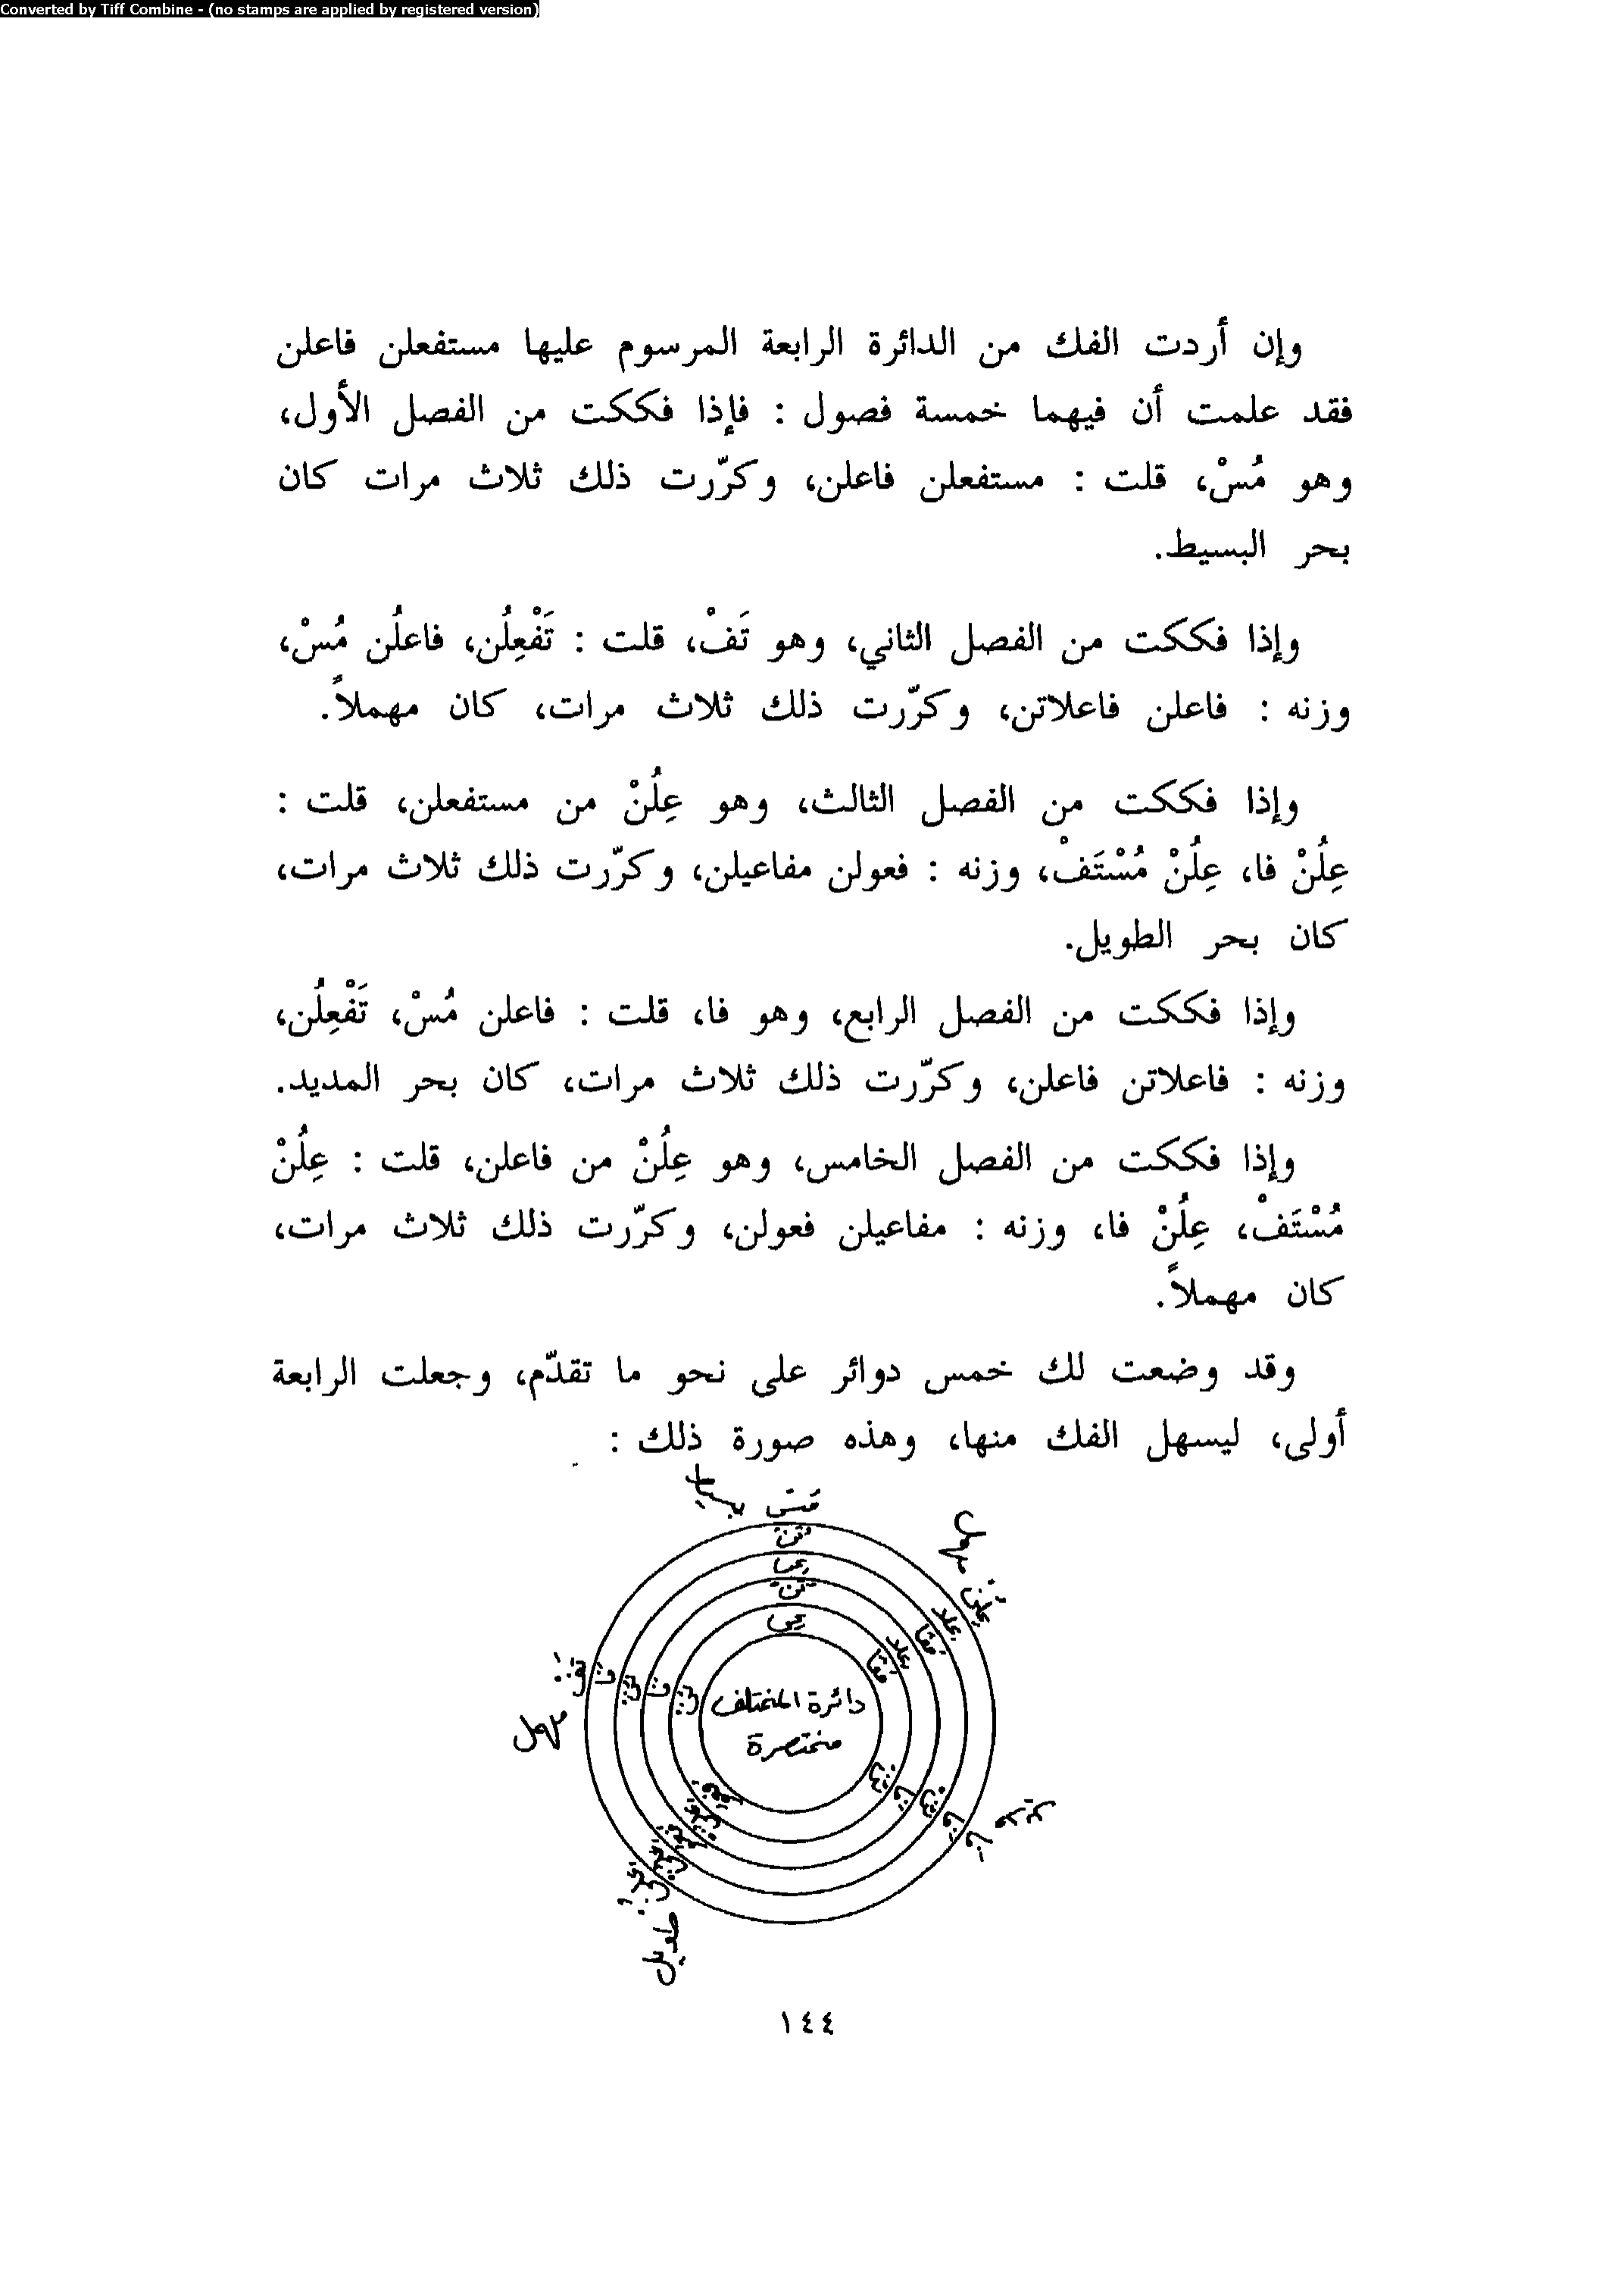 Converted by Tiff Combine - (no stamps are applied by registered version)
وإن أردت الفك من الدائرة الرابعة المرسوم عليها مستفعلن فاعلن
فقد علمت أن فيهما خمسة فصول : فإذا فككت من الفصل الأول،
وهو مُسْ، قلت : مستفعلن فاعلن، وكرّرت ذلك ثلاث مرات كان
بحر البسيط.
وإذا فككت من الفصل الثاني، وهو تَفْ، قلت : تَفْعِلُن، فاعلُن مُسْ،
وزنه : فاعلن فاعلاتن، وكرّرت ذلك ثلاث مرات، كان مهملاً.
وإذا فككت من الفصل الثالث، وهو عِلُنْ من مستفعلن، قلت :
عِلُنْ فا، عِلُنْ مُسْتَفْ، وزنه : فعولن مفاعيلن، وكرّرت ذلك ثلاث مرات،
كان بحر الطويل.
وإذا فككت من الفصل الرابع، وهو فا، قلت : فاعلن مُسْ، تَفْعِلُن،
وزنه : فاعلاتن فاعلن، وكرّرت ذلك ثلاث مرات، كان بحر المديد.
وإذا فككت من الفصل الخامس، وهو عِلُنْ من فاعلن، قلت : عِلُنْ
مُسْتَفْ، عِلُنْ فا، وزنه : مفاعيلن فعولن، وكرّرت ذلك ثلاث مرات،
كان مهملاً.
وقد وضعت لك خمس دوائر على نحو ما تقدّم، وجعلت الرابعة
أولى، ليسهل الفك منها، وهذه صورة ذلك :
مس بسيط
تن
عي
تن
عي
علن مهمل
علا
مفا
علا
مفا
فا مديد
طويل
تف مهمل
فا
لن
فا
لن
دائرة المختلف
مختصرة
١٤٤